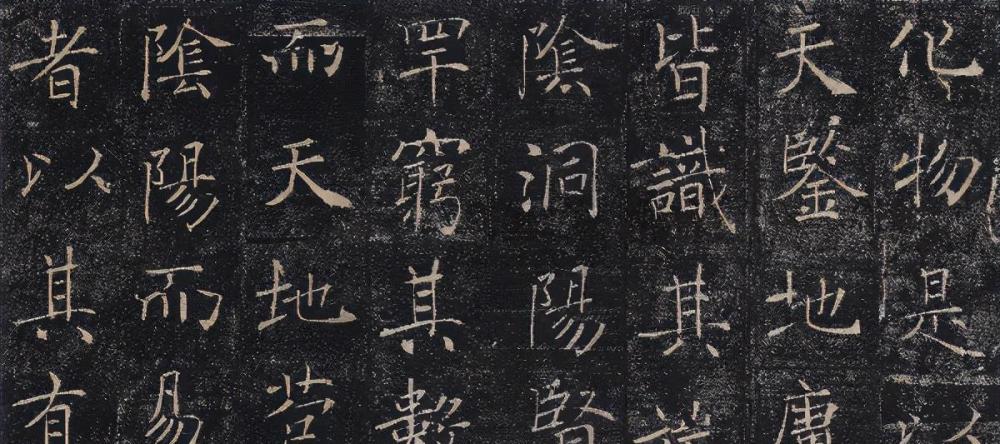 化物是以
天鑒地庸
皆識其
陰洞陽賢
罕窮其數
而天地苞
陰陽而易
者以其有